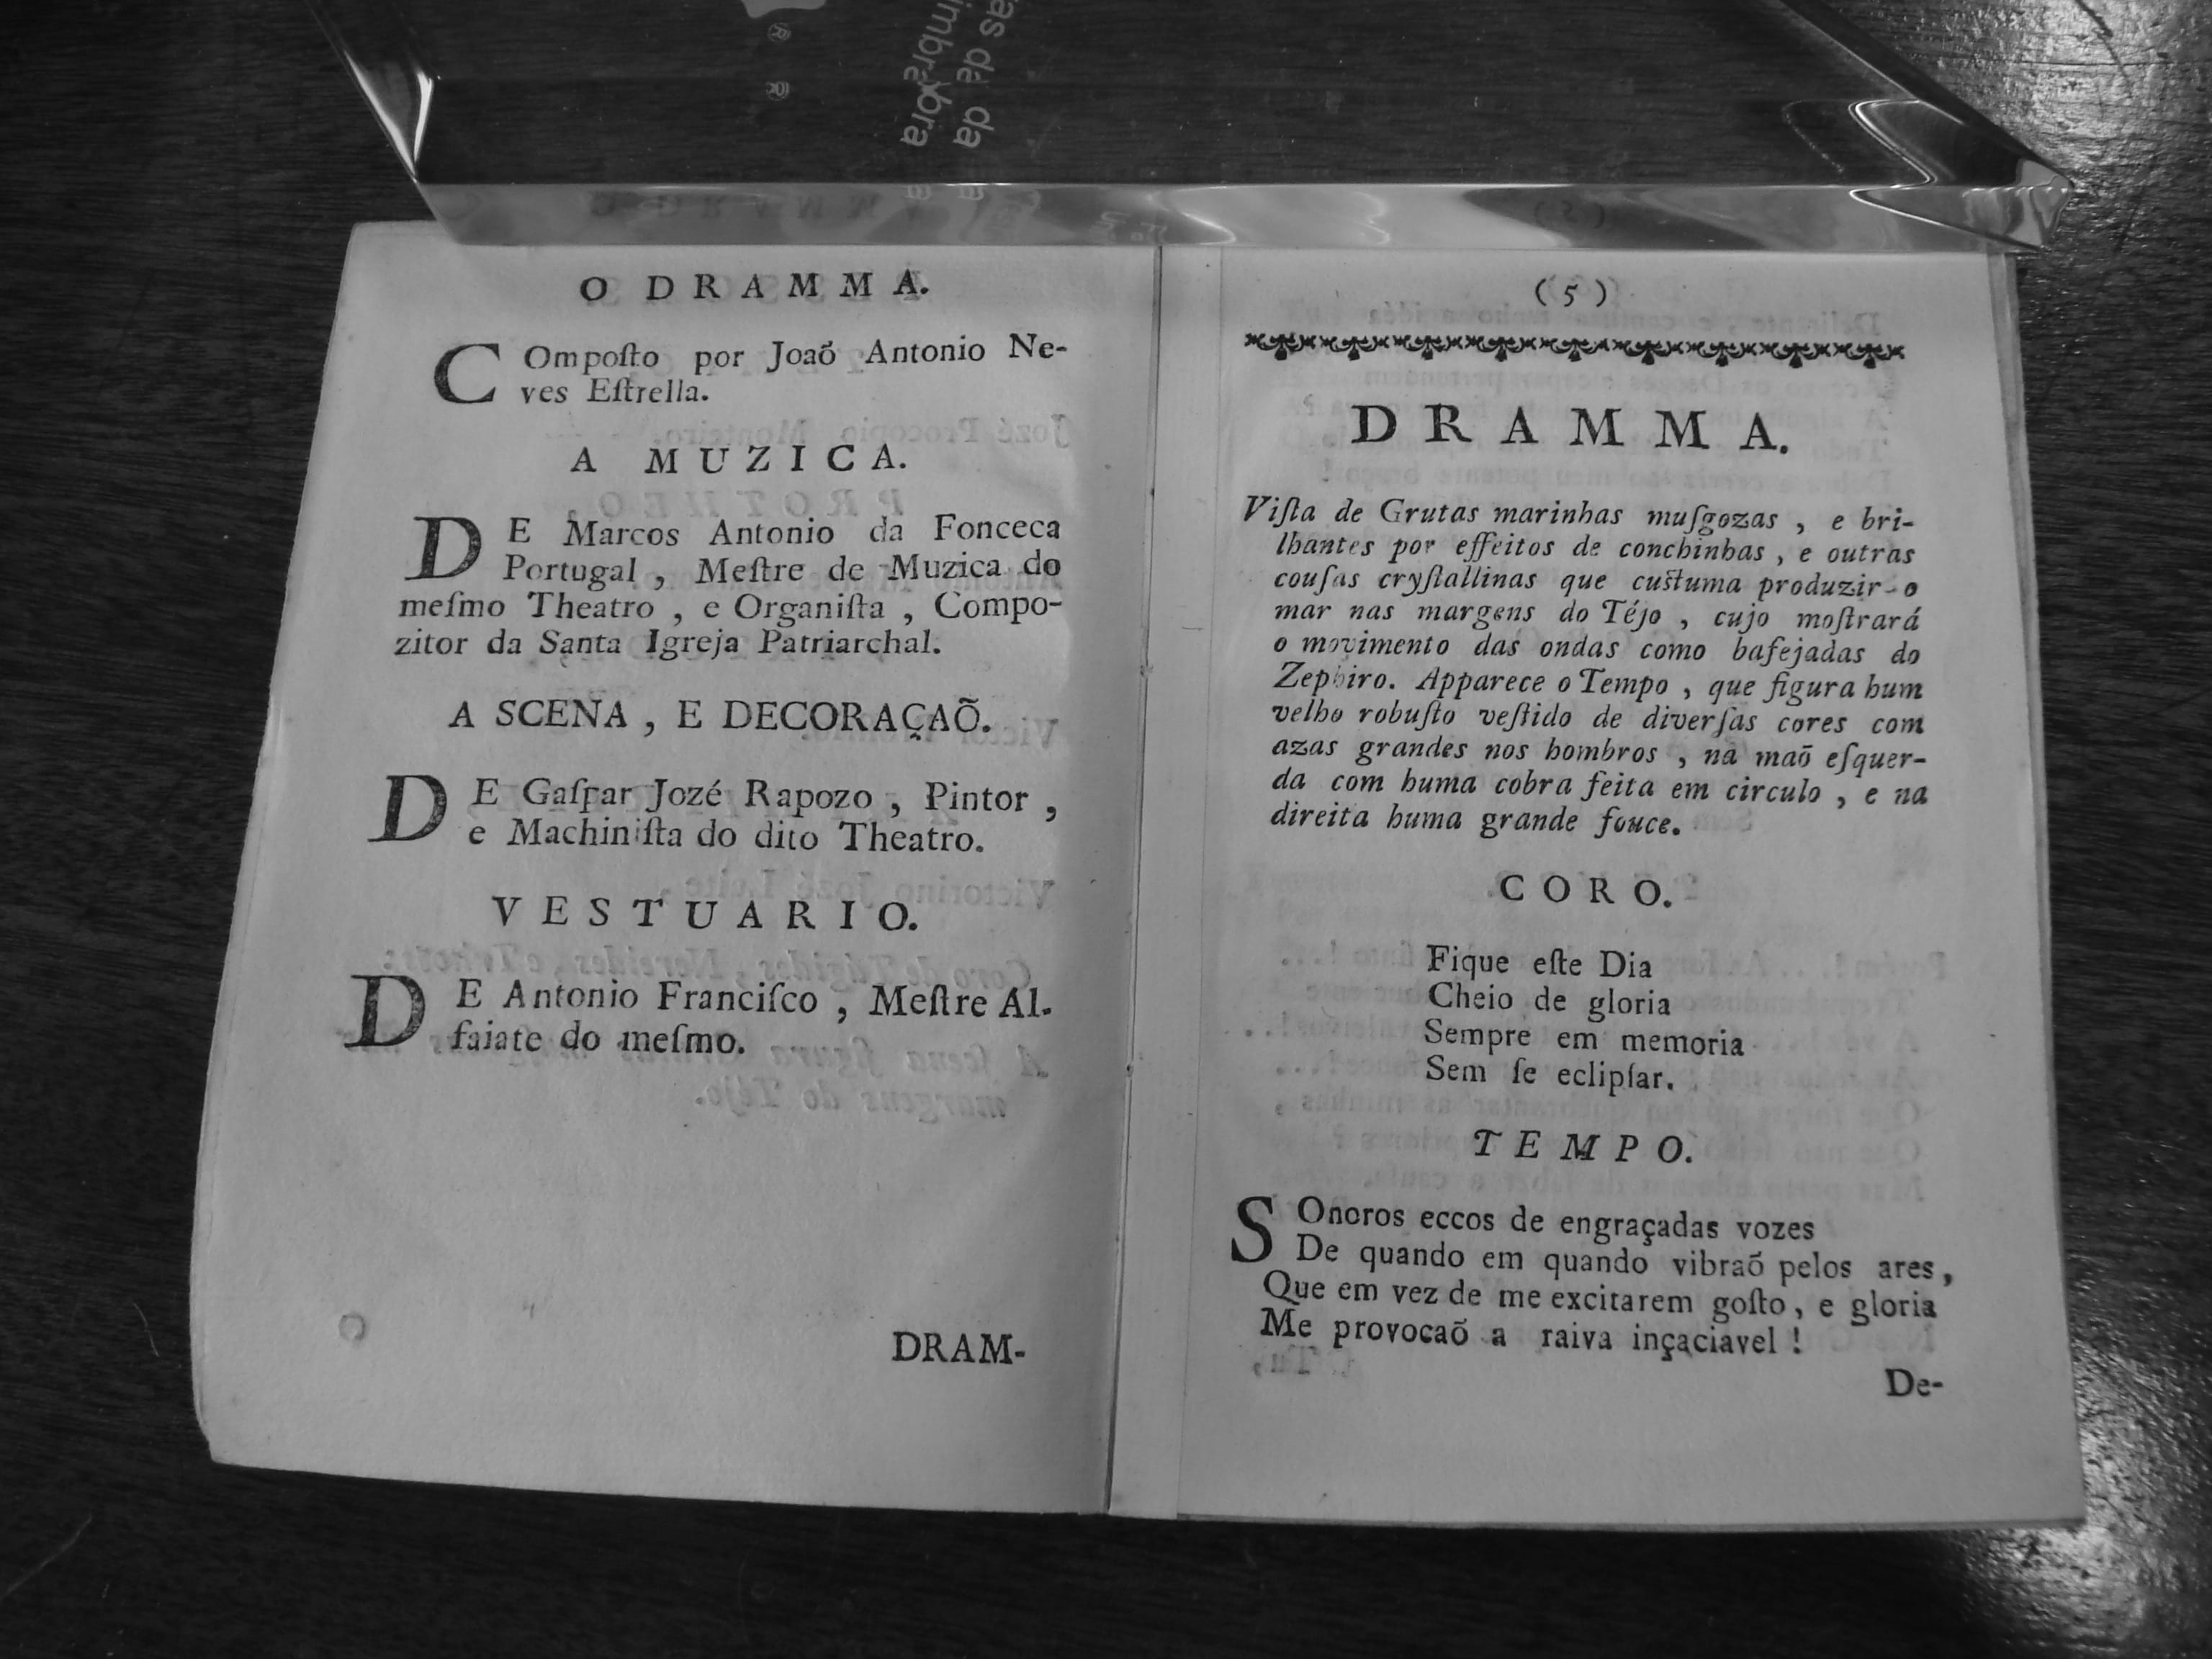 O DRAMMA.
COmpoſto por Joaõ Antonio Ne-
ves Eſtrella.
A MUZICA.
DE Marcos Antonio da Fonceca
Portugal , Meſtre de Muzica do
meſmo Theatro , e Organiſta , Compo-
zitor da Santa Igreja Patriarchal.
A SCENA , E DECORAÇAÕ.
DE Gaſpar Jozé Rapozo , Pintor ,
e Machiniſta do dito Theatro.
VESTUARIO.
DE Antonio Franciſco , Meſtre Al-
faiate do meſmo.
DRAM-
( 5 )
DRAMMA.
Viſta de Grutas marinhas muſgozas , e bri-
lhantes por effeitos de conchinhas , e outras
couſas cryſtallinas que cuſtuma produzir o
mar nas margens do Téjo , cujo moſtrará
o movimento das ondas como bafejadas do
Zephiro. Apparece o Tempo , que figura hum
velho robuſto veſtido de diverſas cores com
azas grandes nos hombros , na maõ eſquer-
da com huma cobra feita em circulo , e na
direita huma grande fouce.
CORO.
Fique eſte Dia
Cheio de gloria
Sempre em memoria
Sem ſe eclipſar.
TEMPO.
SOnoros eccos de engraçadas vozes
De quando em quando vibraõ pelos ares,
Que em vez de me excitarem goſto, e gloria
Me provocaõ a raiva inçaciavel !
De-